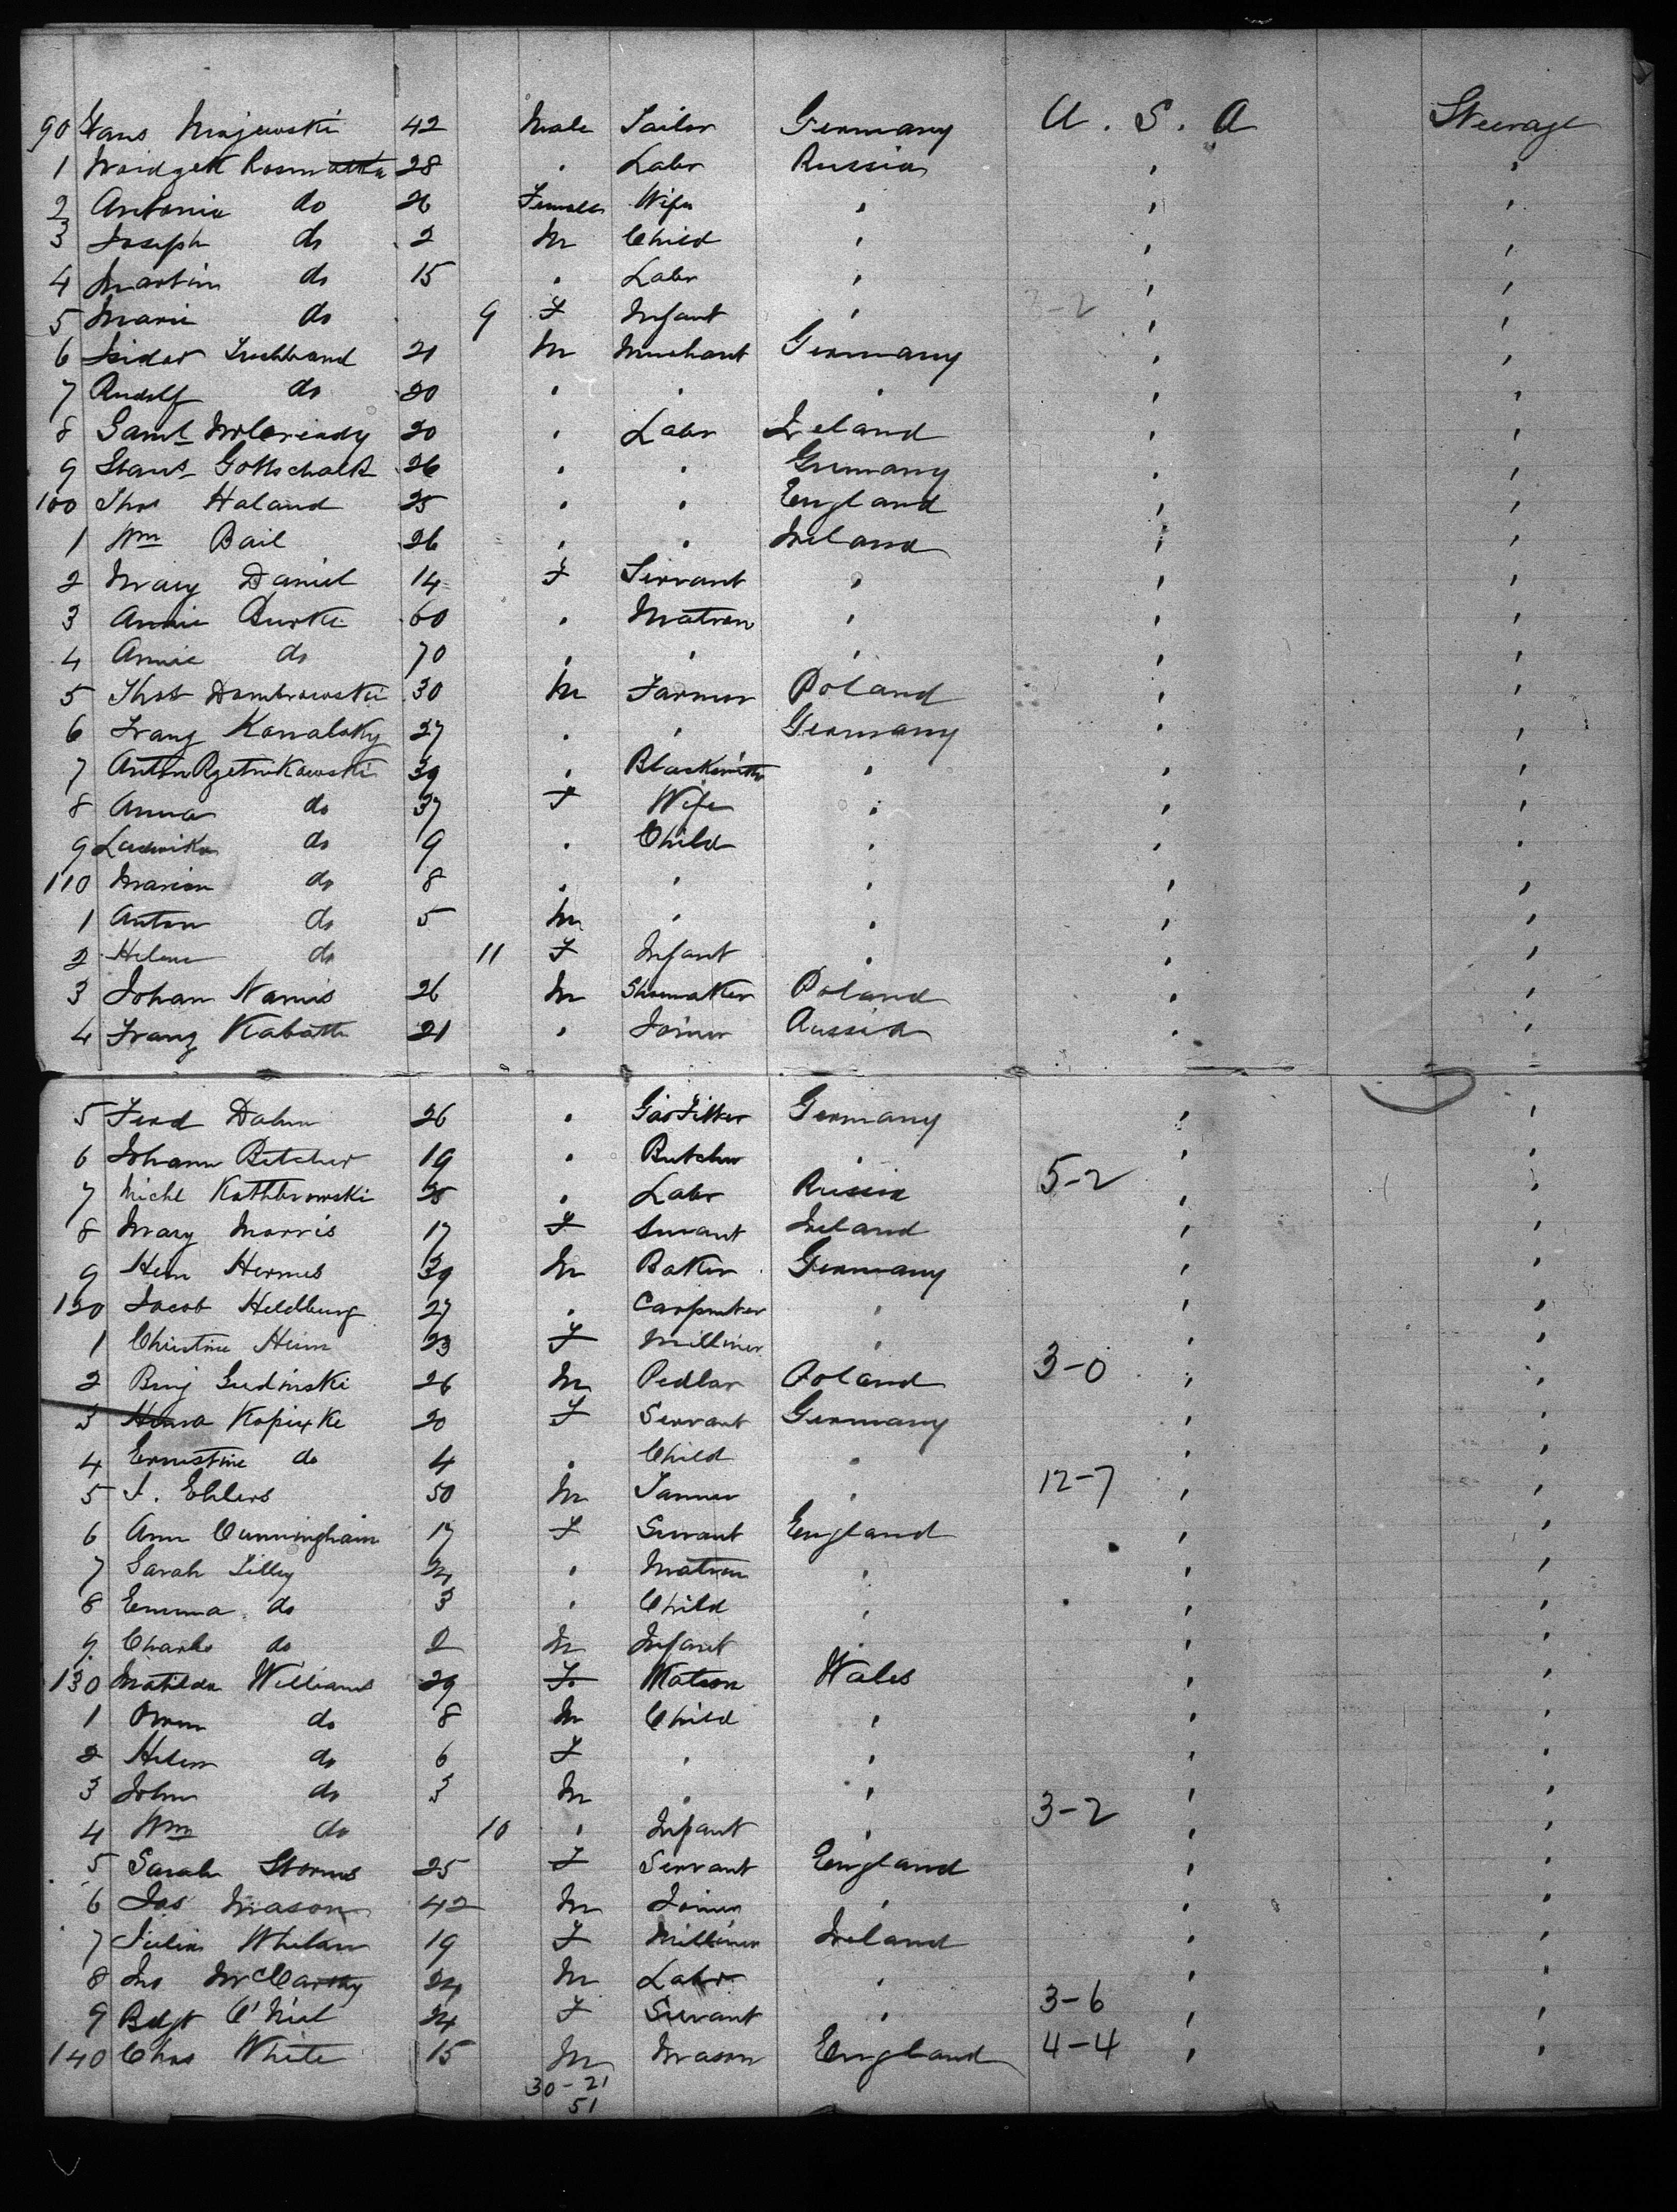 90 Hans Majewski 42 Male Tailor Germany U. S. A Steerage
1 28 " Labr Russia " "
2 Antonia do 26 Female Wife " " "
3 Joseph do 2 M Child " " "
4 Martin do 15 " Labr " " "
5 Marie do 9 F Infant " 3-2 " "
6 Isidor 21 M Merchant Germany " "
7 Rudolf do 20 " " " " "
8 Saml McCready 20 " Labr Ireland " "
9 Gottschalk 26 " " Germany " "
100 Thos Haland 25 " " England " "
1 Wm Bail 26 " " Ireland " "
2 Mary Daniel 14 F Servant " " "
3 Annie Burke 60 " Matron " " "
4 Annie do 70 " " " " "
5 Thos Dombrowski 30 M Farmer Poland " "
6 Franz Kowalsky 27 " " Germany " "
7 Anton 39 " Blacksmith " " "
8 Anna do 37 F Wife " " "
9 Ludwika do 9 " Child " " "
110 Marian do 8 " " " " "
1 Anton do 5 M " " " "
2 Helene do 11 F Infant " " "
3 Johan Namis 26 M Shoemaker Poland " "
4 Franz Kabatte 21 " Joiner Russia " "
5 Ferd Dahm 26 " Gas Fitter Germany " "
6 Johann Betcher 19 " Butcher " " "
7 Michl Kathbrowski 25 " Labr Russia 5-2 " "
8 Mary Morris 17 F Servant Ireland " "
9 Hein Hermes 39 M Baker Germany " "
120 Jacob Heldburg 27 " Carpenter " " "
1 Christine Heim 23 F Milliner " " "
2 Benj Gudinski 26 M Pedlar Poland 3-0 " "
3 20 F Servant Germany " "
4 Ernestine do 4 " Child " " "
5 J. Ehlers 50 M Tanner " 12-7 " "
6 Ann Cunningham 17 F Servant England " "
7 Sarah Lilley 24 " Matron " " "
8 Emma do 3 " Child " " "
9 Charles do M Infant " "
130 Matilda Williams 29 F Matron Wales " "
1 Owen do 8 M Child " " "
2 Helen do 6 F " " " "
3 John do 3 M " " " "
4 Wm do 10 " Infant " 3-2 " "
5 Sarah Storms 25 F Servant England " "
6 Jas Mason 42 M Joiner " " "
7 Julia Whelan 19 F Milliner Ireland " "
8 Jno McCarthy 24 M Labr " " "
9 Bdgt O'Niel 24 F Servant " 3-6 " "
140 Chas White 15 M Mason England 4-4 " "
30-21
51